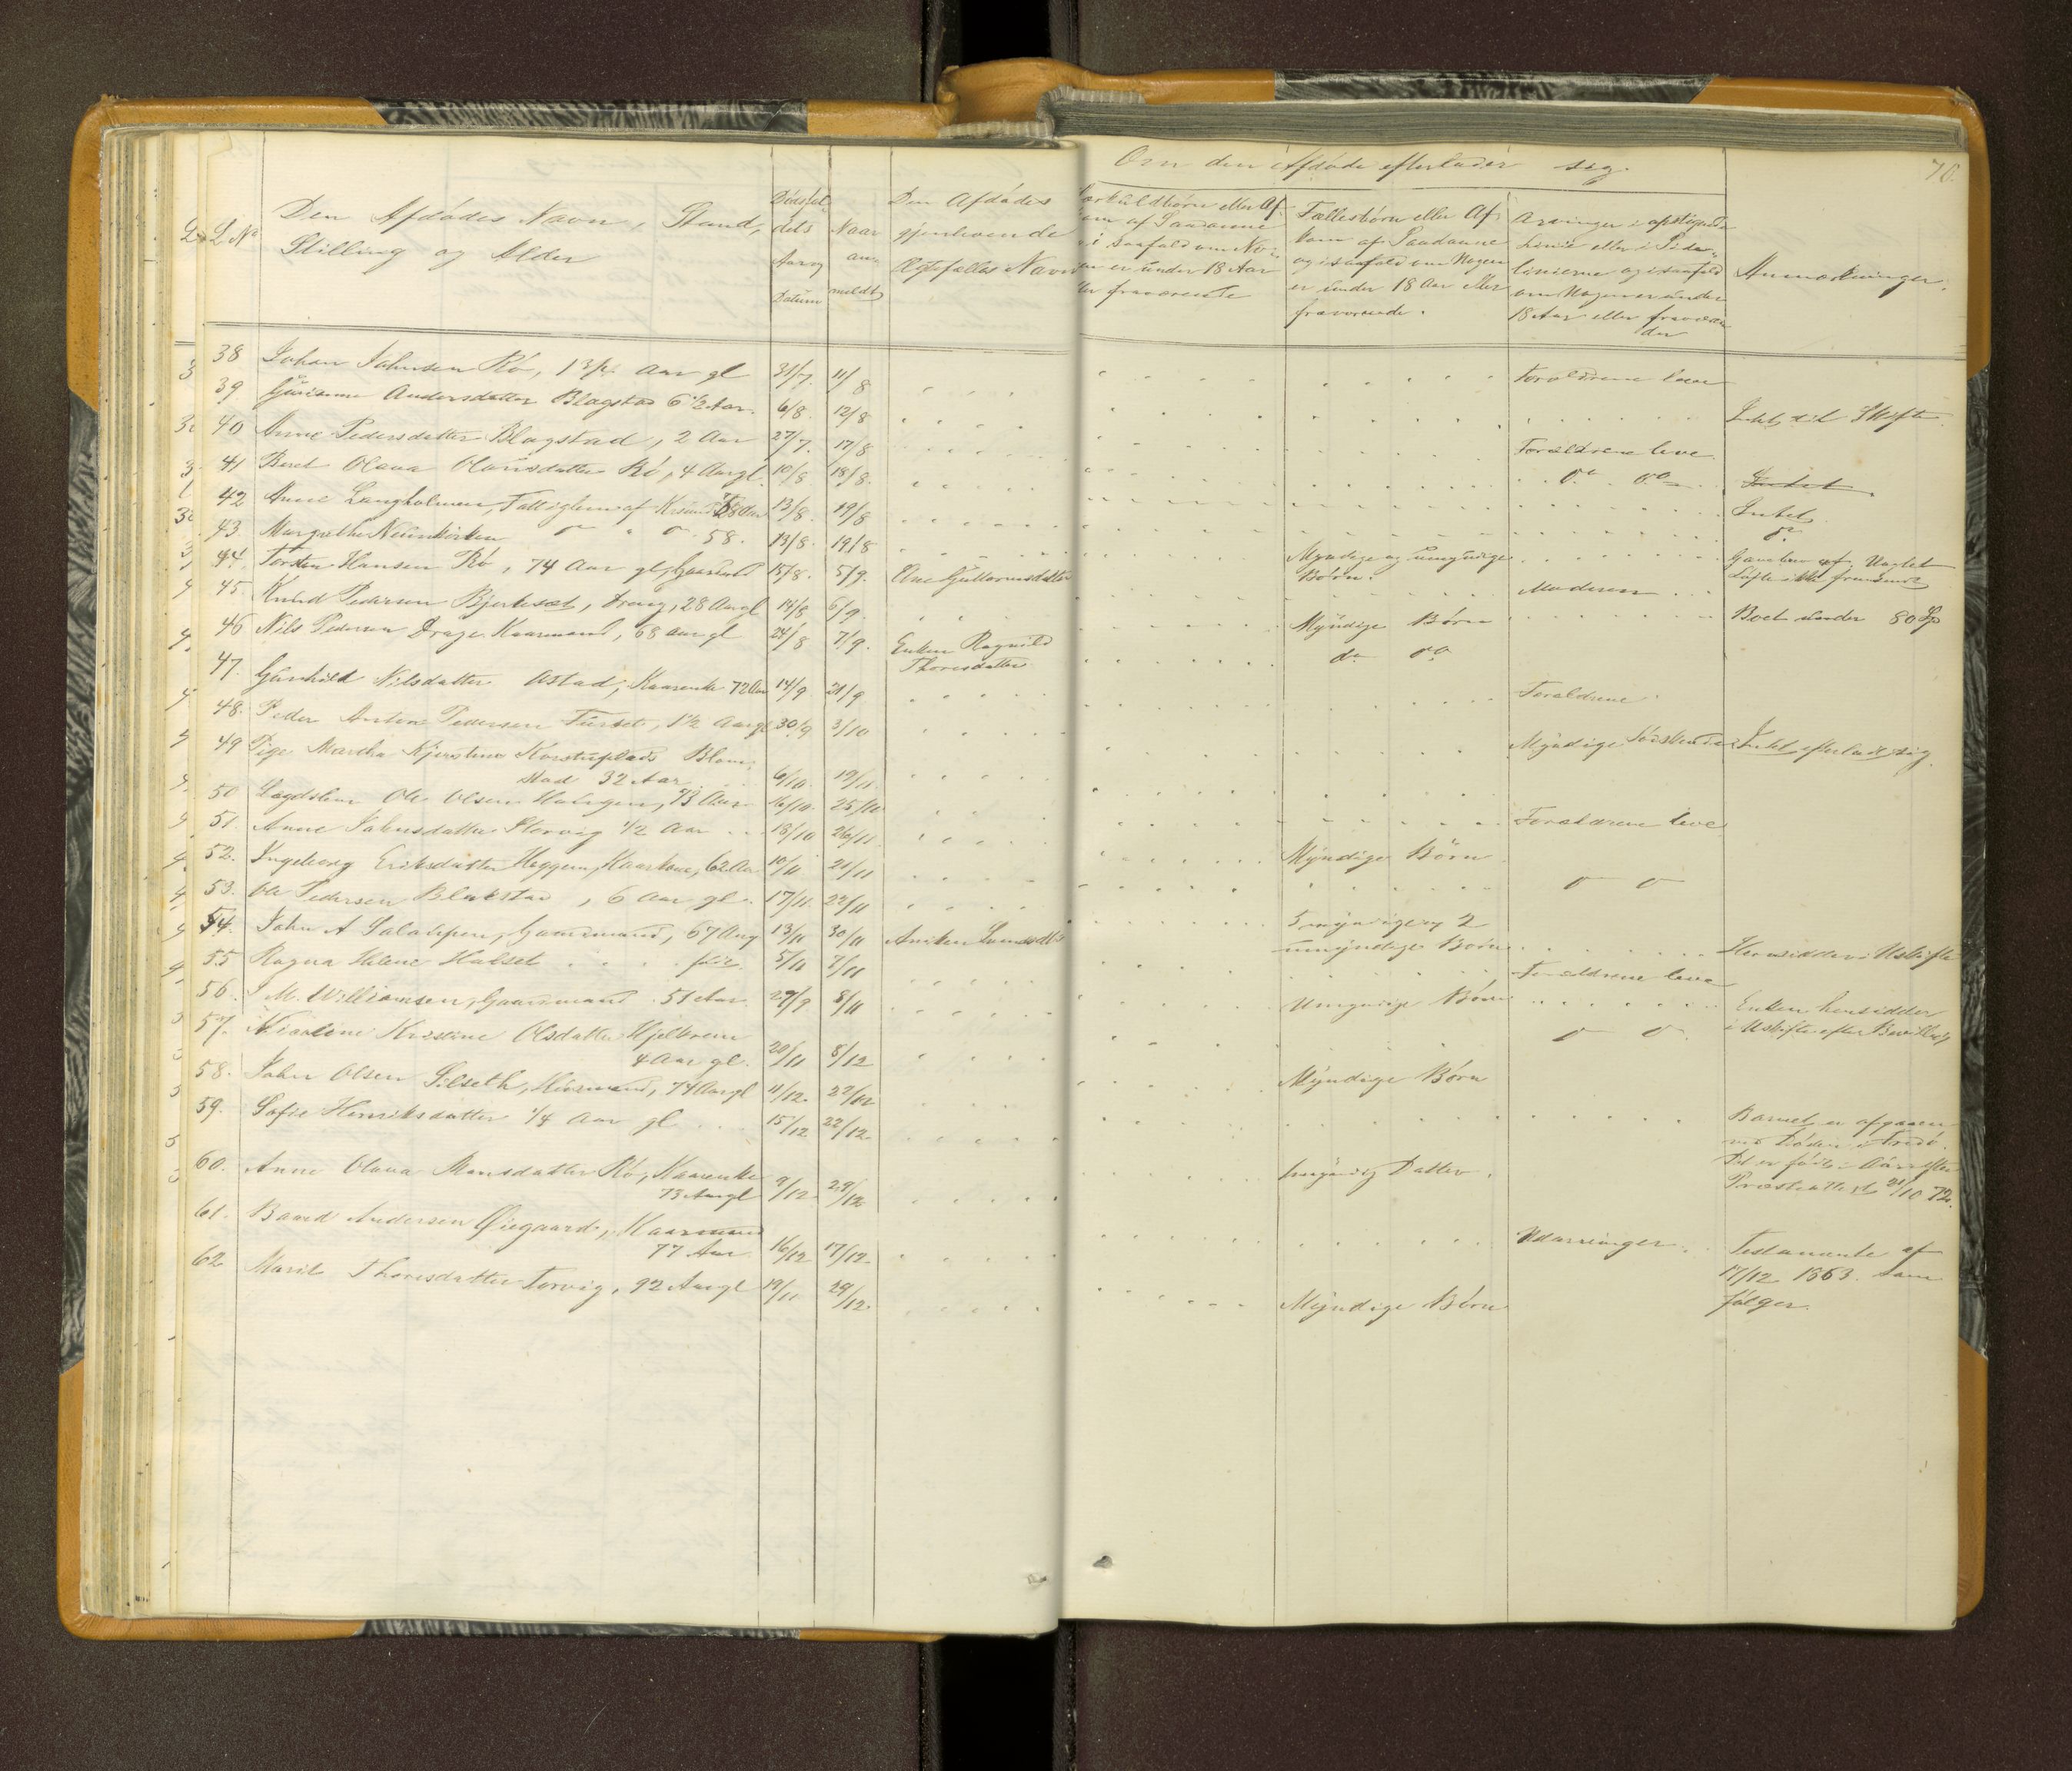 Om den Afdøde efterlader sig.
70.
L. No
Den Afdødes Navn, Stand,
Stilling og Alder
Dødsfal-
dets
Aar og
Datum
Naar
an-
meldt
Den Afdødes
gjenlevende
Ægtefælles Navn
Særkuldbørn eller Af-
kom af Saadanne
er under 18 Aar
eller fraværende
Fællesbørn eller Af-
kom af Saadanne
og i saafald om Nogen
er under 18 Aar eller
fraværende.
Arvinger i opstigende
Linie eller i Side-
linierne og i saafald
om Nogen er under
18 Aar eller fraværen-
der
Anmærkninger.
38 Johan Johnsen Rö, Aar gl 31/7. 11/8 Forældrene leve
39 Andersdatter Blagstad 6 1/2 Aar. 6/8. 12/8 Intet til Skifte
40 Anne Pedersdatter Blagstad, 2 Aar 27/7. 17/8 Forældrene leve
41 Beret Olava Olausdatter Rö, 4 Aar gl. 10/8 18/8. do do Intet
42 Anne Langholmen, Fattiglem af 13/8. 19/8 Intet
43. Margrethe 58. 13/8. 19/8 do
44. Torsten Hansen Rö, 74 Aar gl, Gaardmd 15/8. 5/9. Ane Guttormsdatter Myndige og umyndige
Børn.
45. Knud Pedersen Bjerkeset, Dreng, 28 Aar gl 14/8 6/9. Moderen
46 Nils Pedersen Drage Kaarmand, 68 Aar gl 24/8 7/9. Enken Ragnild
Thoresdatter Myndige Børn Boet under 80 Sp
47. Gunhild Nilsdatter Astad, Kaarenke 72 Aar 14/9 21/9 do do
48. Peder Anton Pedersen Furset, 1 1/2 Aar gl 30/9 3/10 Forældrene
49 Pige Martha Kjerstine Blom-
stad 32 Aar 6/10. 19/11 Myndige Sødskende Intet efterladt sig.
50. Lægdslem Ole Olsen Haugen, 73 Aar 16/10. 25/10
51. Anne Johnsdatter Storvig 1/2 Aar 18/10 26/11. Forældrene leve
52. Ingeborg Eriksdatter Heggem, Kaarkone, 62 Aar 10/11 21/11 Myndige Børn
53. Ole Pedersen Blakstad, 6 Aar gl. 17/11. 22/11 do do
54. John A Solahppen, Gaardmand, 67 Aar 13/11 30/11 5 myndige og 2
umyndige Børn Hensidder i Uskifte
55 Ragna Helene Halset 5/11 7/11 Forældrene leve
56. J M. Williamsen, Gaardmand 51 Aar 29/9 8/11 Umyndige Børn Enken hensidder
i Uskifte efter Bevilling
57. Nicoline Kristine Olsdatter Hjelkrem
4 Aar gl. 20/11 8/12 do do
58. John Olsen Silseth, Huusmand, 74 Aar gl 11/12. 22/12 Myndige Børn
59. Sofie Henriksdatter 1/4 Aar gl 15/12 22/12. Barnet er afgaaen
ved Døden
Præsteattest 31/10 72.
60. Anne Olava Monsdatter Rö, Kaarenke
73 Aar gl 9/12. 29/12 umyndig Datter.
61. Baard Andersen Øiegaard, Kaarmand
77 Aar 16/12 17/12. Udarvinger. Testamente af
17/12 1863. som
følger.
62 Marit Thoresdatter Torvig, 92 Aar gl 19/11 29/12. Myndige Børn